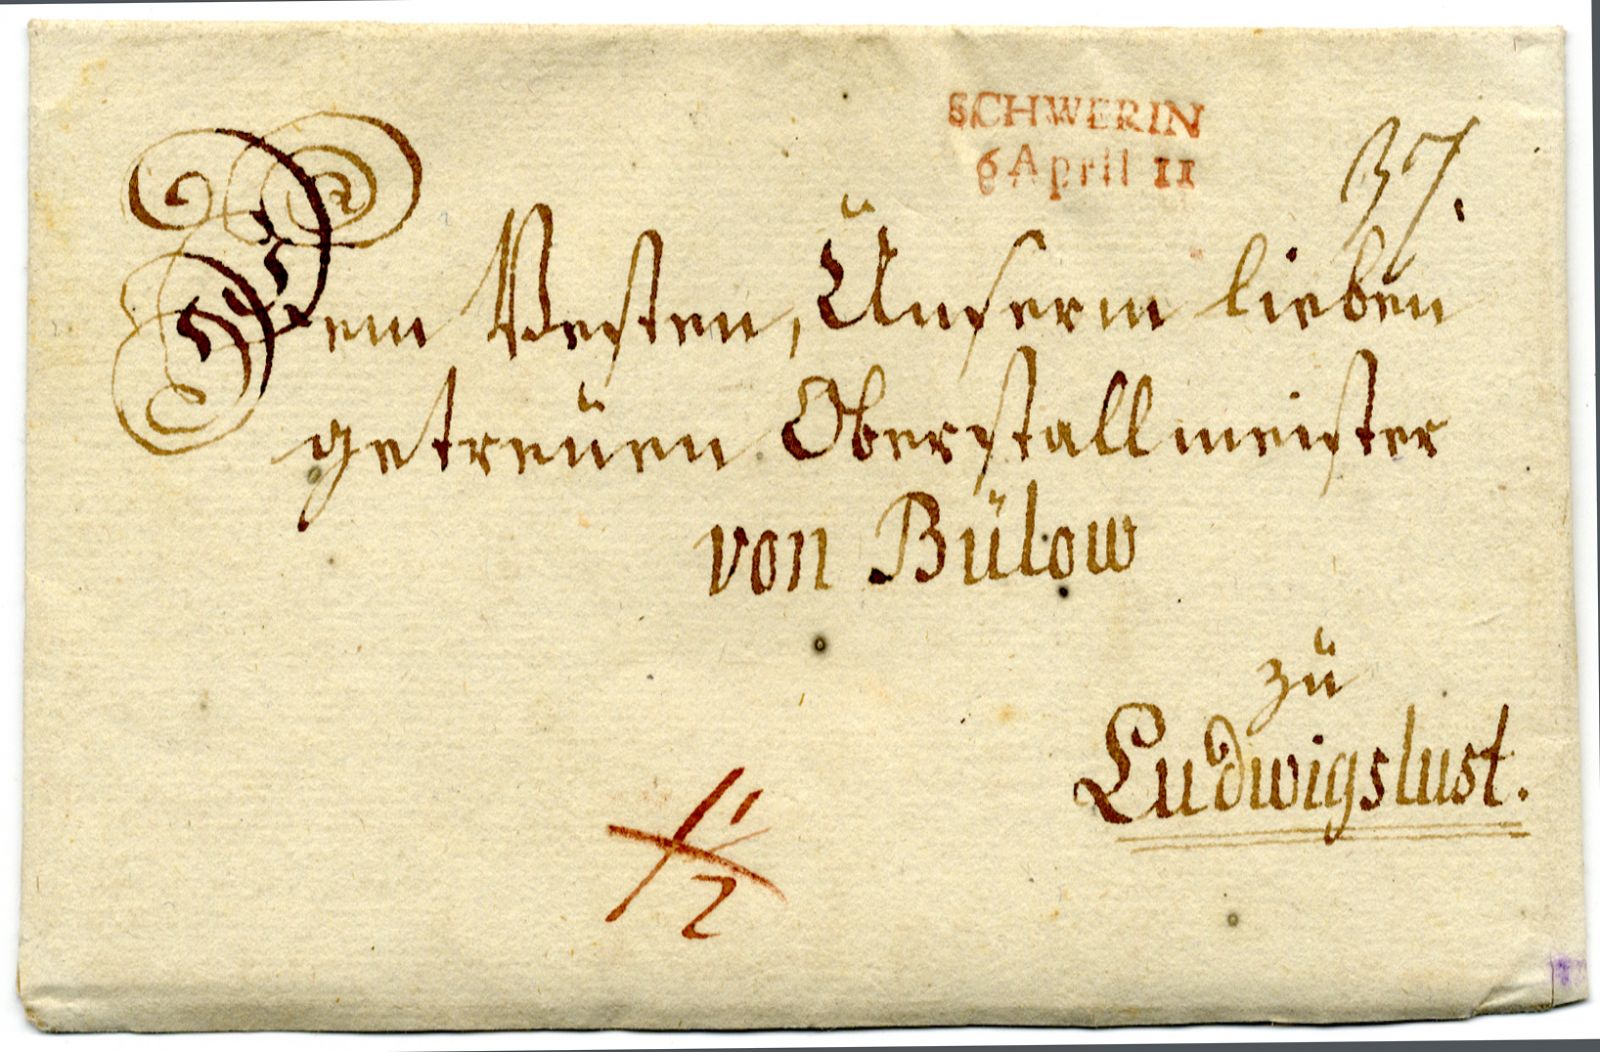 SCHWERIN
6 April 11
37.
Dem Vesten, Unserm lieben
getreuen Oberstallmeister
von Bülow
zu
Ludwigslust.
1/2